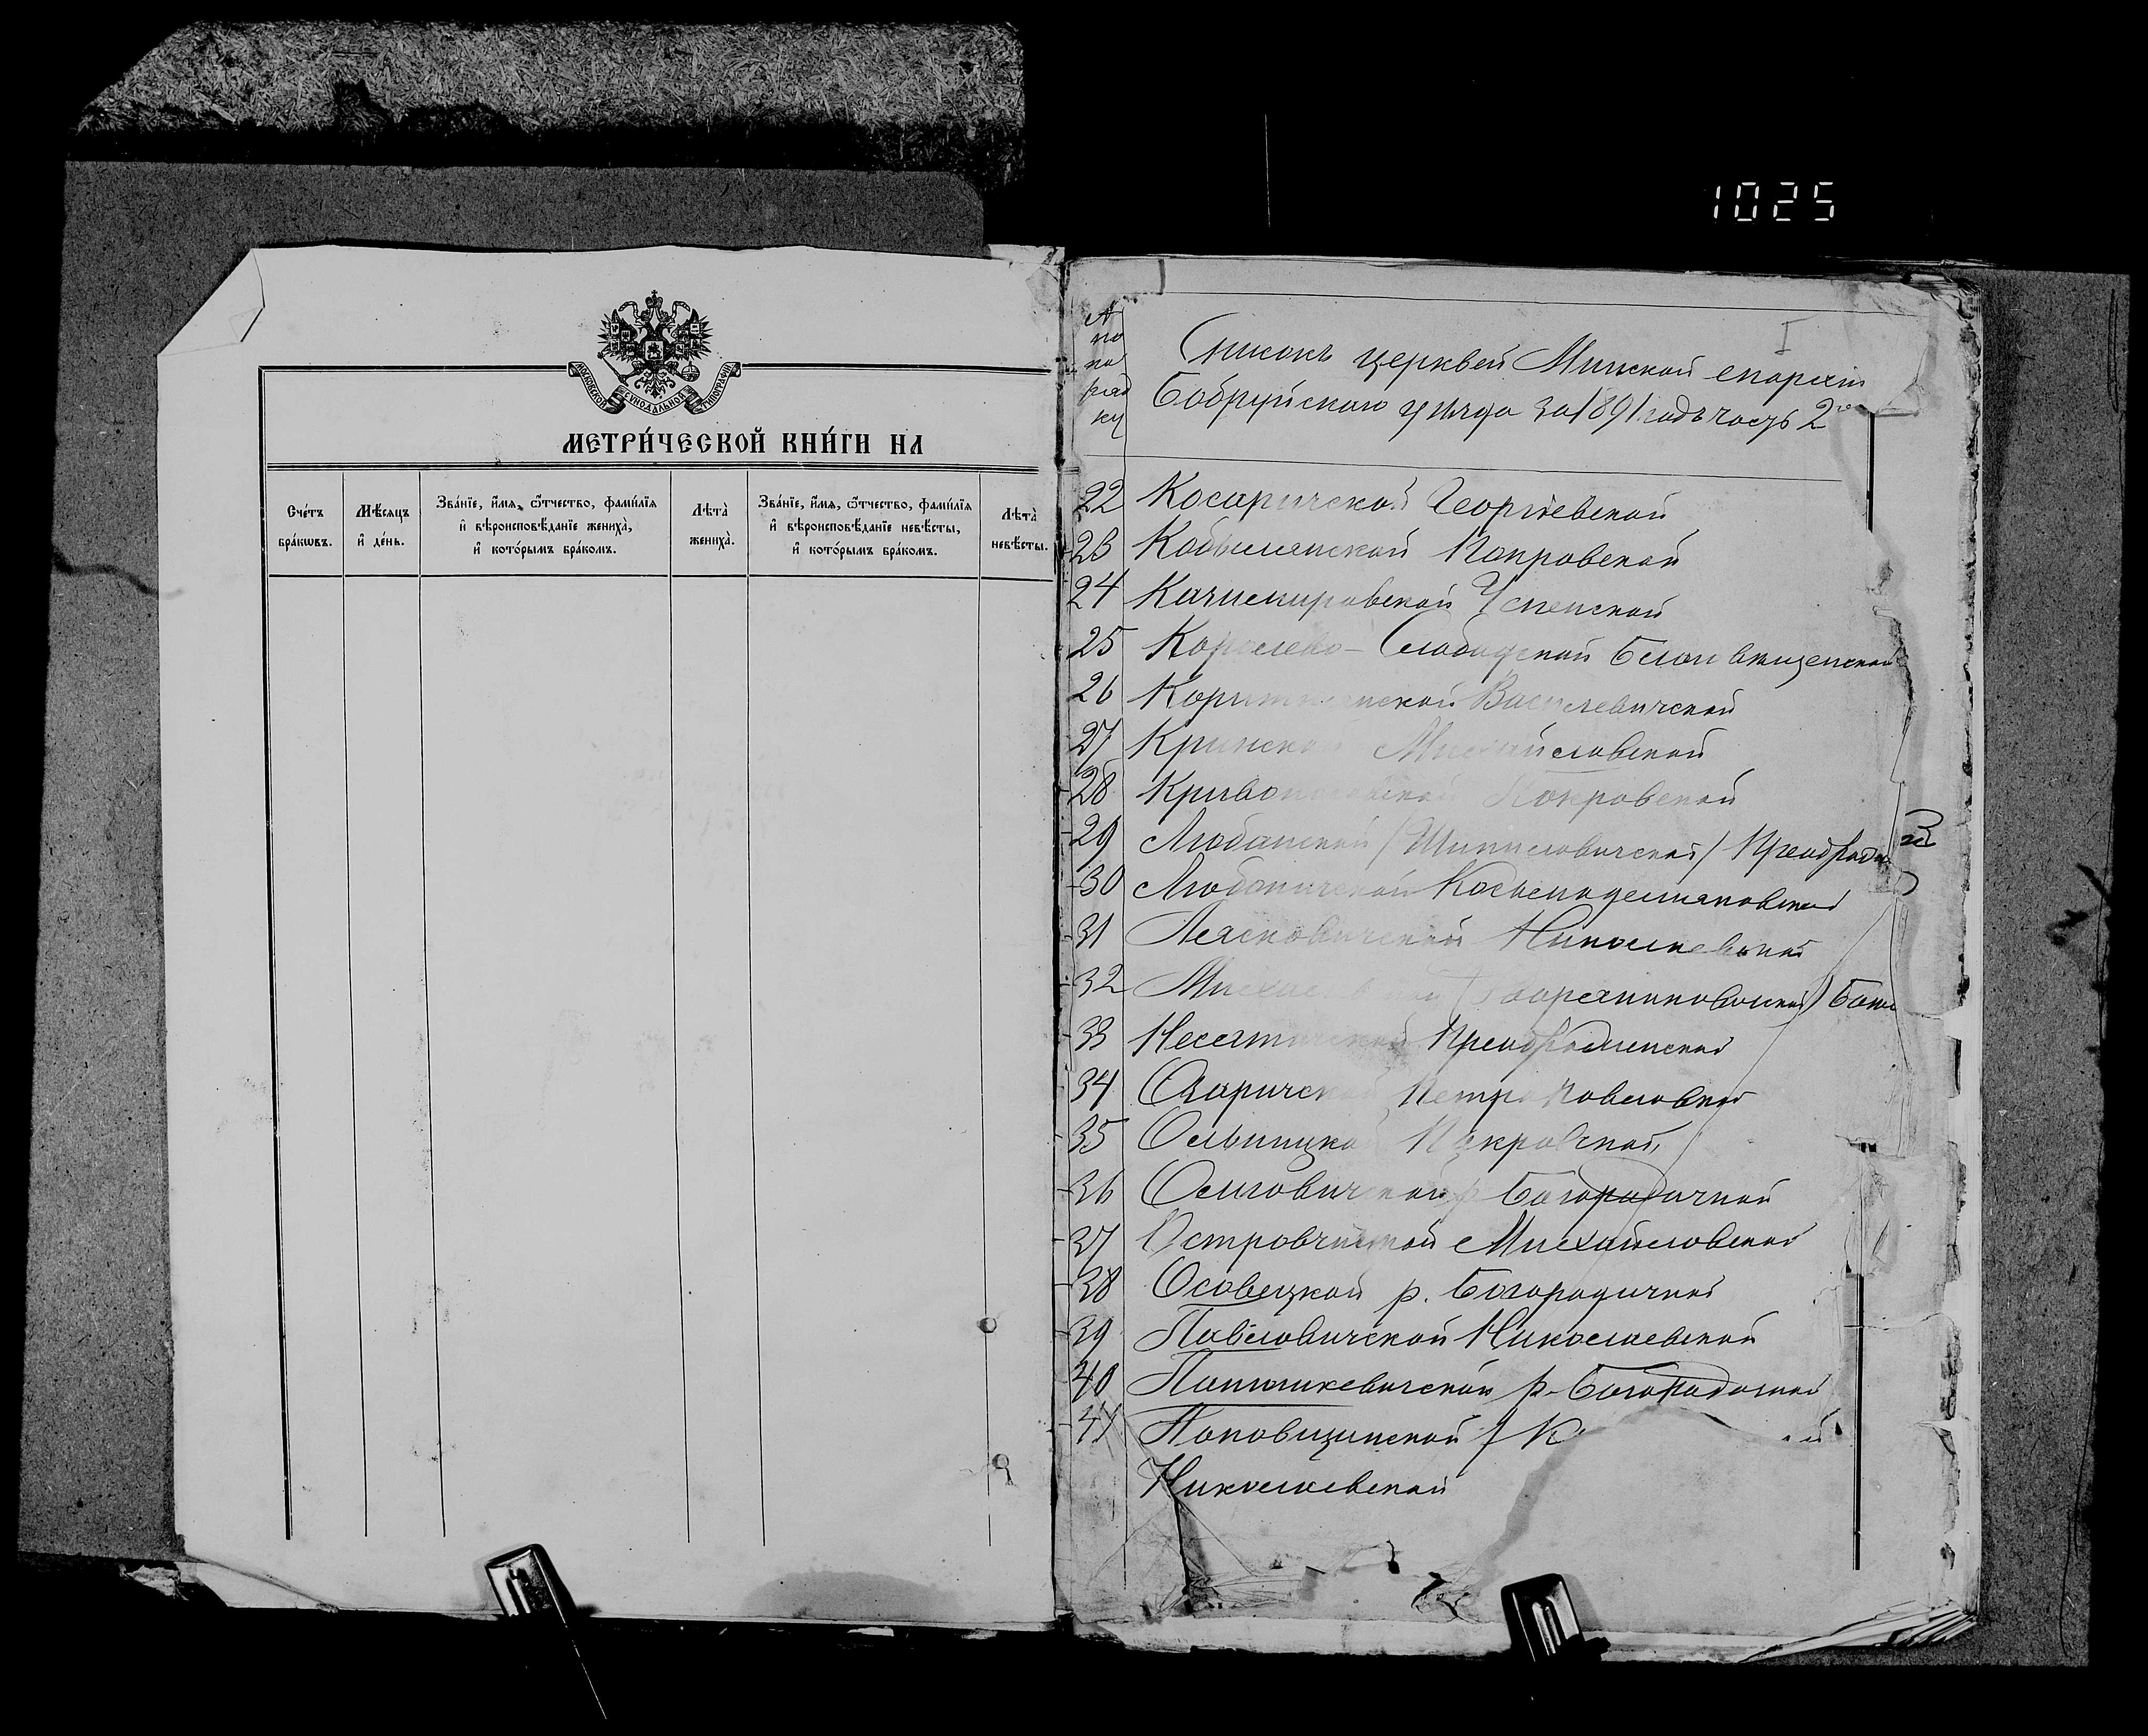 1025
МОСКОВСКОЙ СѴНОДАЛЬНОЙ ТИПОГРАФІИ
МЕТРИ́ЧЕСКОЙ КНИ́ГИ НА
Сче́тъ бра́ковъ.
Мѣ́сяцъ и҆ де́нь.
Зва́нїе, и҆́мя, ѻ҆́тчество, фами́лїя
и҆ вѣроисповѣ́данїе жениха̀,
и҆ кото́рымъ бра́комъ.
Лѣта̀ жениха̀.
Зва́нїе, и҆́мя, ѻ҆́тчество, фами́лїя
и҆ вѣроисповѣ́данїе невѣ́сты,
и҆ кото́рымъ бра́комъ.
Лѣта̀ невѣ́сты.
№ по по рядку
I
Списокъ церквей Минской епархіи
Бобруйскаго уѣзда за 1891 годъ часть 2
22 Косаричской Георгіевской
23 Кобылянской Покровской
24 Казимировской Успенской
25 Королево-Слободской Благовѣщенской
26 Василевичской
27 Кринской Михайловской
28 Покровской
29 Любанской /Шипиловичской/
30 Любоничской Косьмодемьяновской
31 Лясковичской Николаевской
32
33 Несятичской Преображенской
34 Озаричской Петропавловской
35 Ольницкой Покровской
36 Осиповичской р. Богородичной
37 Островчицкой Михайловской
38 Осовецкой р. Богородичной
39 Павловичской Николаевской
40 р. Богородичной
41 Поповщинской / К
Николаевской